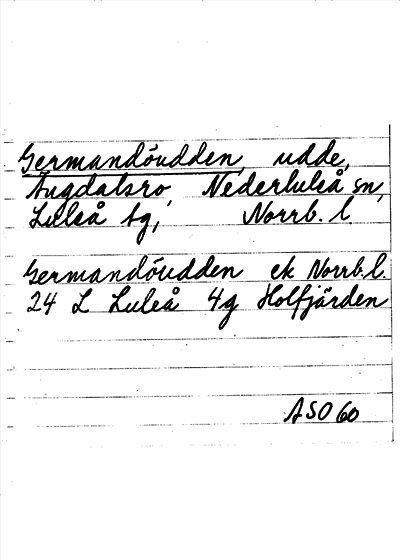 Germandöudden, udde,
Ängdalsro, Nederluleå sn,
Luleå tg, Norrb. l.
Germandöudden ek Norrb. l.
24 L Luleå 4g Holfjärden
ASO 60